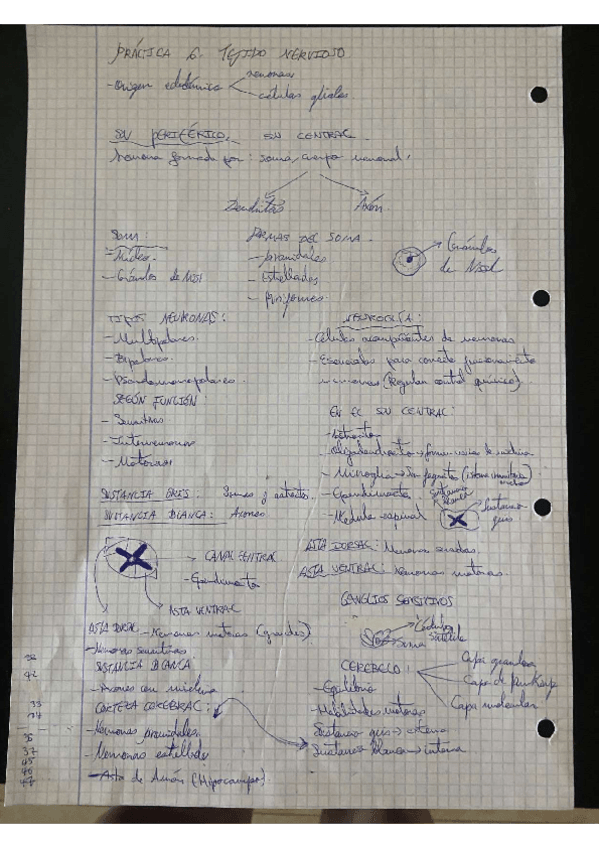 PRÁCTICA 6. TEJIDO NERVIOSO
- Origen ectodérmico
neuronas
células gliales
SN PERIFÉRICO, SN CENTRAL
Neurona formada por: soma, cuerpo neuronal,
Dendritas
Axón
SOMA:
- Núcleo
- Gránulos de Nissl
FORMAS DEL SOMA
- piramidales
- Estrelladas
- Piriformes
Gránulos
de Nissl
TIPOS NEURONAS:
- Multipolares
- Bipolares
- Pseudomonopolares
SEGÚN FUNCIÓN:
- Sensitivas
- Interneuronas
- Motoras
SUSTANCIA GRIS: Somas y astrocitos
SUSTANCIA BLANCA: Axones
CANAL CENTRAL
- Ependimocito
ASTA VENTRAL
ASTA DORSAL - Neuronas motoras (grandes)
- Neuronas sensitivas
SUSTANCIA BLANCA
- Axones con mielina
CORTEZA CEREBRAL:
- Neuronas piramidales
- Neuronas estrelladas
- Asta de Amón (Hipocampo)
NEUROGLÍA:
- Células acompañantes de neuronas
- Esenciales para correcto funcionamiento
neuronas (Regulan control químico)
EN EL SN CENTRAL:
- Astrocitos
- Oligodendrocitos → forman vainas de mielina
- Microglía → Son fagocitos (sistema inmunitario)
- Ependimocitos
- Médula espinal
Sustancia
blanca
Sustancia
gris
ASTA DORSAL: Neuronas
ASTA VENTRAL: Neuronas motoras
GANGLIOS SENSITIVOS
Células
Satélite
Soma
CEREBELO:
Capa granulosa
Capa de Purkinje
Capa molecular
- Equilibrio
- Habilidades motoras
Sustancia gris → externa
Sustancia blanca → interna
42
33
37
45